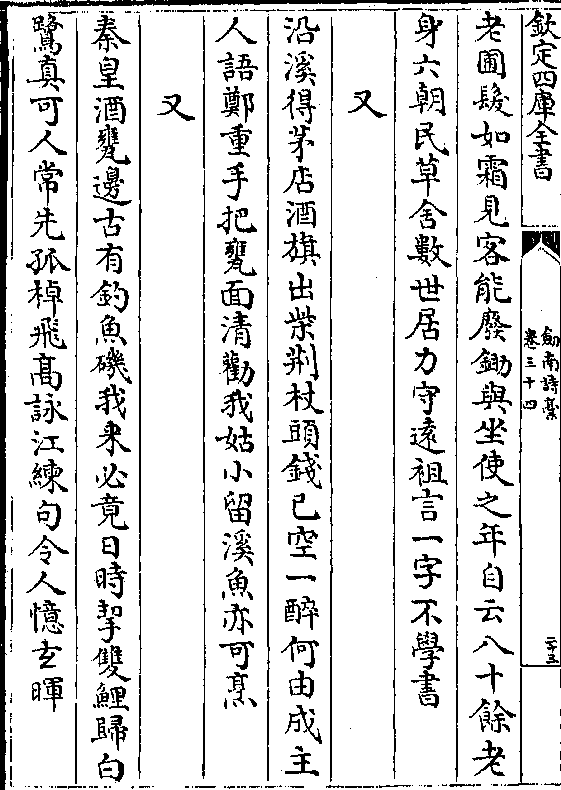 欽定四庫全書
劍南詩稾
卷三十四
二十三
老圃髮如霜見客能廢鋤與坐使之年自云八十餘老
身六朝民草舍數世居力守逺祖言一字不學書
又
沿溪得茅店酒旗出柴荆杖頭錢已空一醉何由成主
人語鄭重手把甕面清勸我姑小留溪魚亦可烹
又
秦皇酒甕邊古有釣魚磯我来必竟日時挈雙鯉歸白
鷺真可人常先孤棹飛髙詠江練句令人憶玄暉